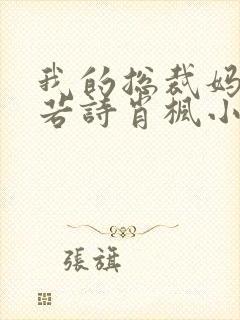 我的总裁妈
若诗肖枫小
張旗